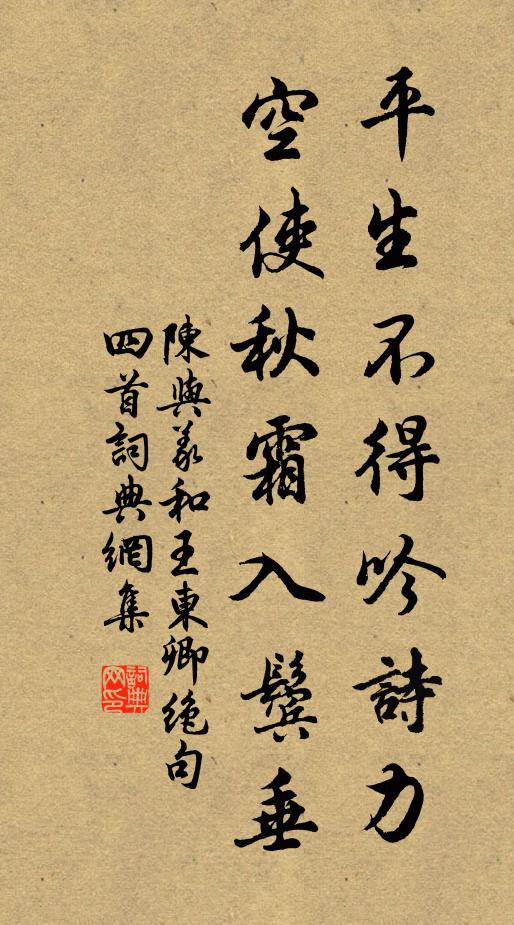 平生不得吟詩力
空使秋霜入鬓垂
陳與義和王東卿絕句
四首詞典網集
詞典
网印